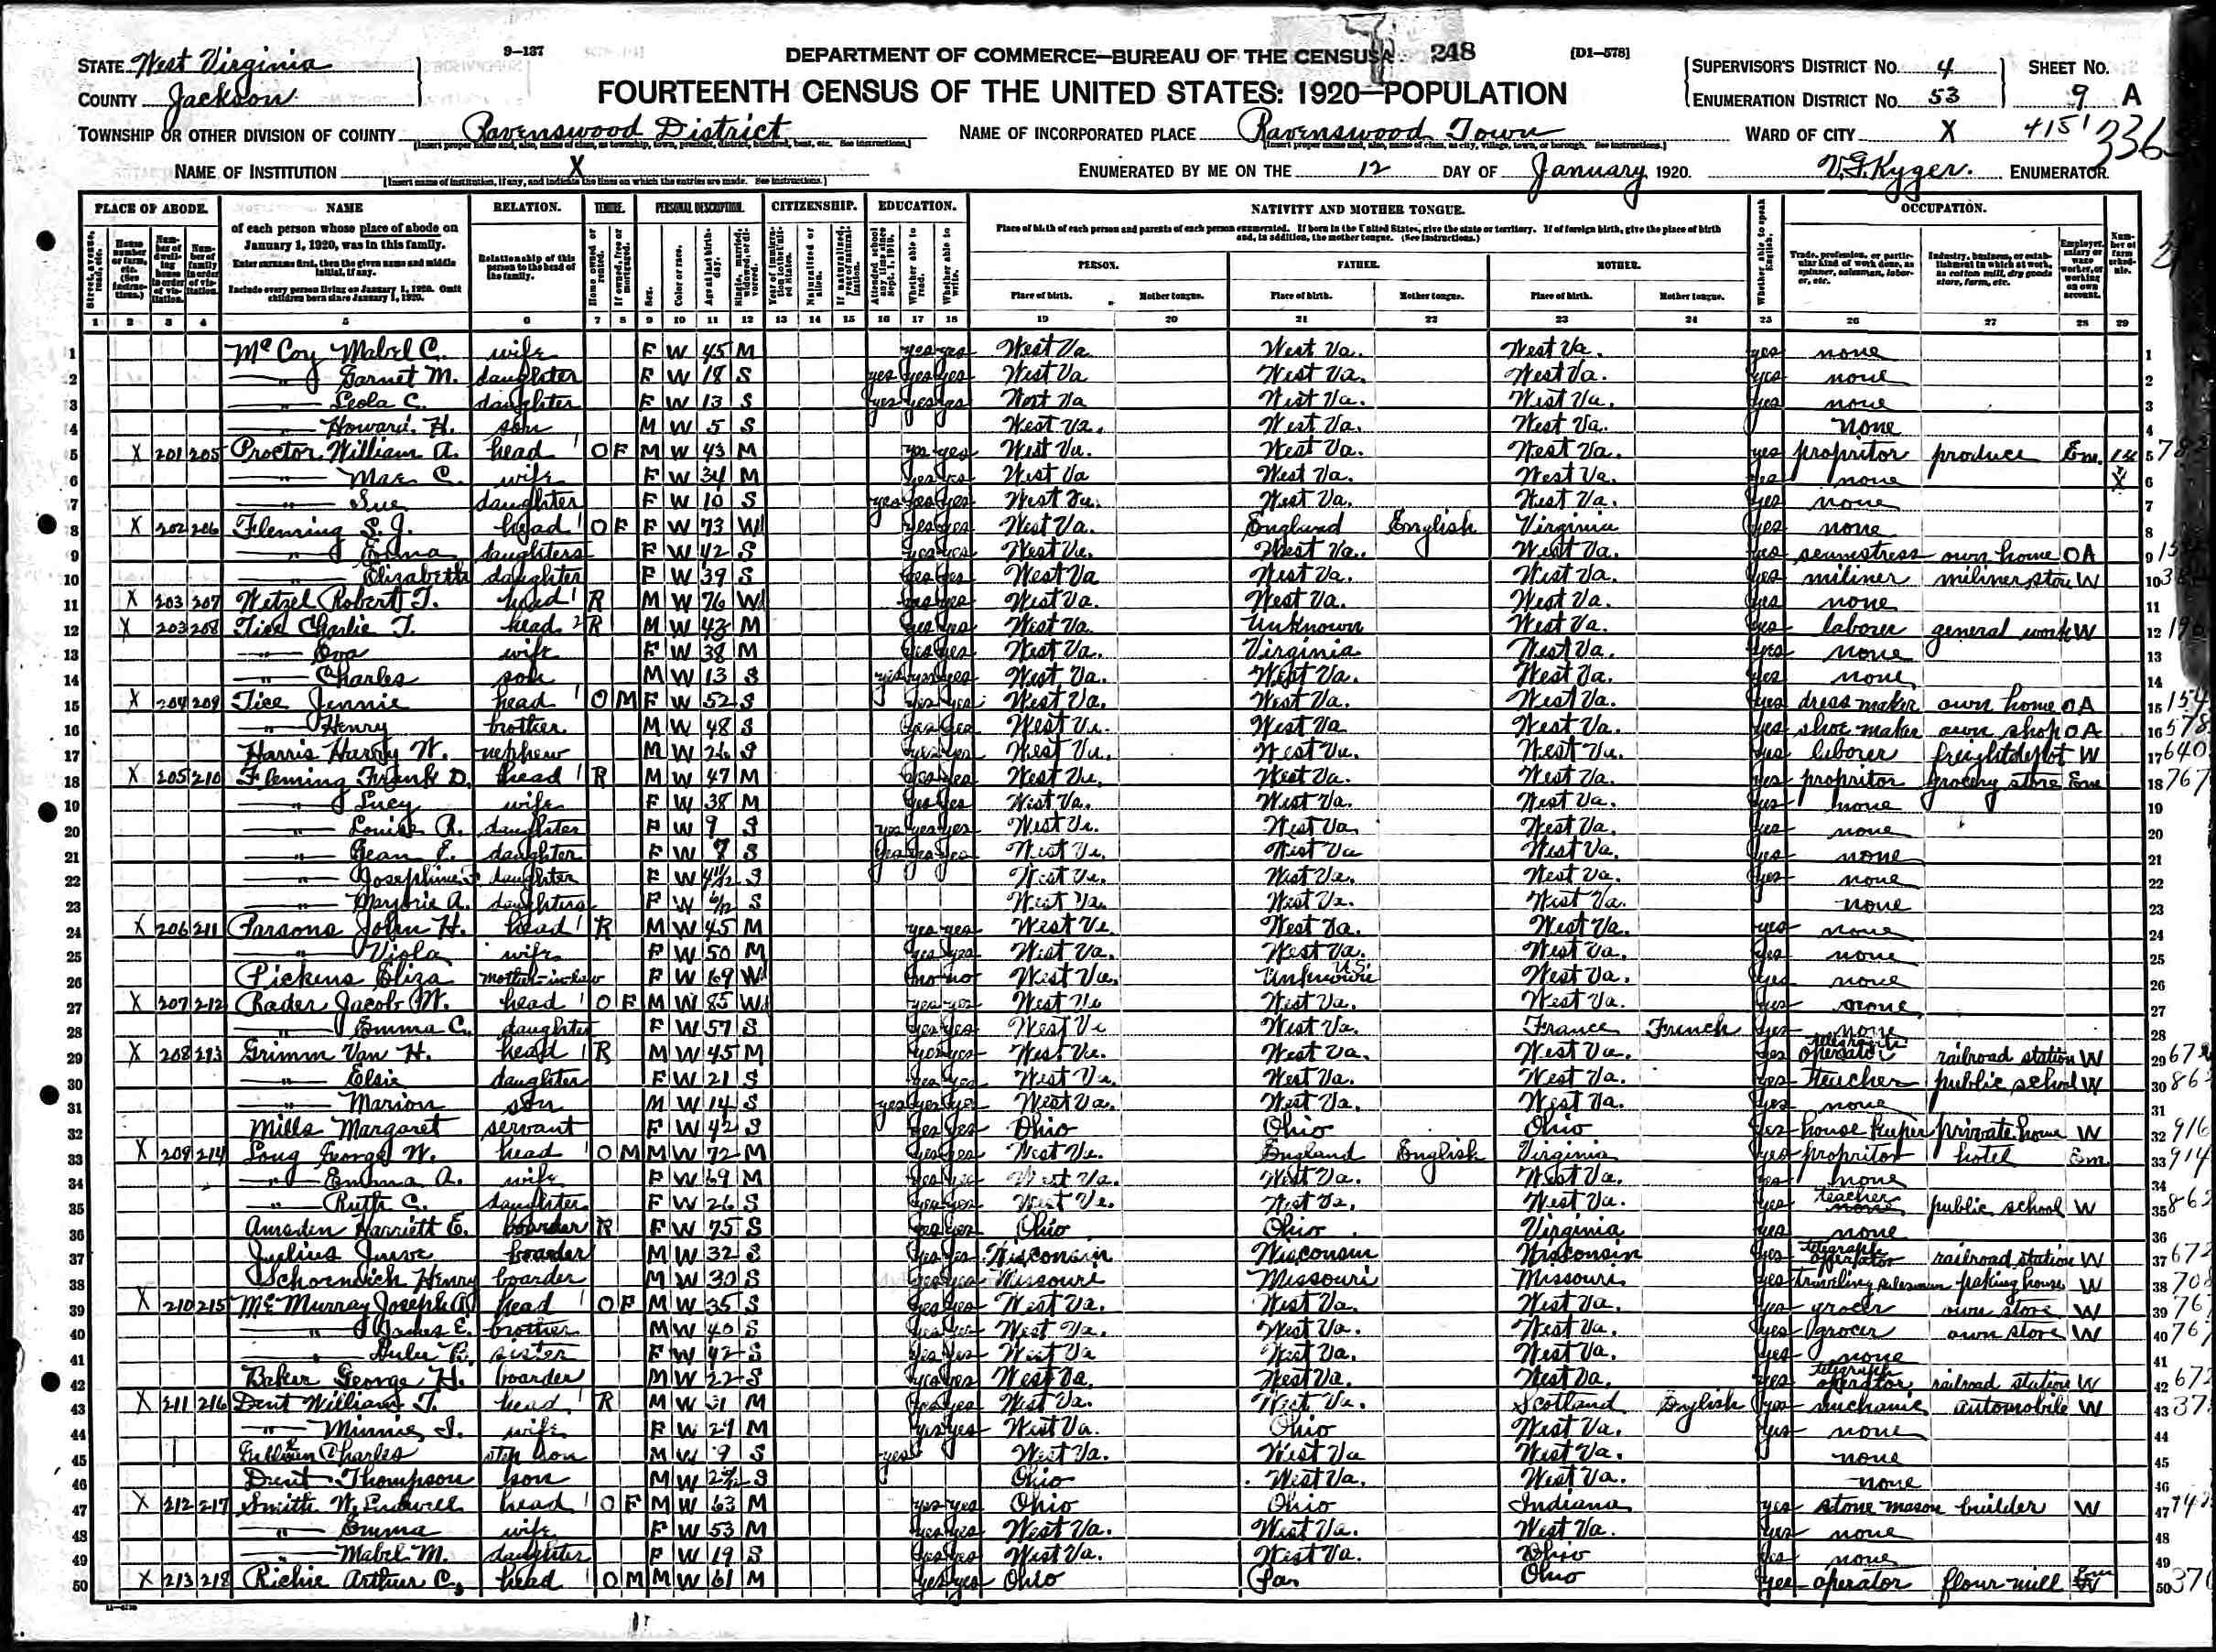 9-137
DEPARTMENT OF COMMERCE—BUREAU OF THE CENSUS
248
[D1-578]
STATE West Virginia
COUNTY Jackson
FOURTEENTH CENSUS OF THE UNITED STATES: 1920—POPULATION
SUPERVISOR'S DISTRICT No. 4
ENUMERATION DISTRICT No. 53
SHEET No. 9 A
TOWNSHIP OR OTHER DIVISION OF COUNTY Ravenswood District
NAME OF INCORPORATED PLACE Ravenswood Town
WARD OF CITY X
4151
336
NAME OF INSTITUTION X
ENUMERATED BY ME ON THE 12 DAY OF January, 1920. V.G. Kyger. ENUMERATOR.
PLACE OF ABODE. NAME RELATION. TENURE. PERSONAL DESCRIPTION. CITIZENSHIP. EDUCATION. NATIVITY AND MOTHER TONGUE. OCCUPATION.
of each person whose place of abode on January 1, 1920, was in this family.
Enter surname first, then the given name and middle initial, if any.
Include every person living on January 1, 1920. Omit children born since January 1, 1920.
Relationship of this person to the head of the family.
Place of birth of each person and parents of each person enumerated. If born in the United States, give the state or territory. If of foreign birth, give the place of birth and, in addition, the mother tongue. (See Instructions.)
PERSON. FATHER. MOTHER.
Place of birth. Mother tongue. Place of birth. Mother tongue. Place of birth. Mother tongue.
1 2 3 4 5 6 7 8 9 10 11 12 13 14 15 16 17 18 19 20 21 22 23 24 25 26 27 28 29
1 McCoy Mabel C. wife F W 45 M yes yes West Va West Va. West Va. yes none 1
2 " Garnet M. daughter F W 18 S yes yes yes West Va West Va. West Va. yes none 2
3 " Leola C. daughter F W 13 S yes yes yes West Va West Va. West Va. yes none 3
4 " Howard H. son M W 5 S West Va. West Va. West Va. none 4
5 X 201 205 Proctor William A. head 1 O F M W 43 M yes yes West Va. West Va. West Va. yes propritor produce Em. 5
6 " Mae C. wife F W 34 M yes yes West Va West Va. West Va. yes none X 6
7 " Sue daughter F W 10 S yes yes yes West Va. West Va. West Va. yes none 7
8 X 202 206 Fleming S. J. head 1 O F F W 73 Wd yes yes West Va. England English Virginia yes none 8
9 " Emma daughters F W 42 S yes yes West Va. West Va. West Va. yes seamstress own home OA 9
10 " Elizabeth daughter F W 39 S yes yes West Va West Va. West Va. yes miliner miliner store W 10
11 X 203 207 Wetzel Robert T. head 1 R M W 76 Wd yes yes West Va. West Va. West Va. yes none 11
12 X 203 208 Tice Charlie T. head 2 R M W 43 M yes yes West Va. Unknown West Va. yes laborer general work W 12
13 " Ova wife F W 38 M yes yes West Va. Virginia West Va. yes none 13
14 " Charles son M W 13 S yes yes yes West Va. West Va. West Va. yes none 14
15 X 204 209 Tice Jennie head 1 O M F W 52 S yes yes West Va. West Va. West Va. yes dress maker own home OA 15 154
16 " Henry brother M W 48 S yes yes West Va. West Va West Va. yes shoe maker own shop OA 16 578
17 Harris Harry W. nephew M W 26 S yes yes West Va. West Va. West Va. yes laborer freight depot W 17 640
18 X 205 210 Fleming Frank D. head 1 R M W 47 M yes yes West Va. West Va. West Va. yes propritor grocery store Em 18 767
19 " Lucy wife F W 38 M yes yes West Va. West Va. West Va. yes none 19
20 " Louise R. daughter F W 9 S yes yes yes West Va. West Va West Va. yes none 20
21 " Jean E. daughter F W 7 S yes yes yes West Va. West Va West Va. yes none 21
22 " Josephine daughter F W 4 11/12 S West Va. West Va. West Va. yes none 22
23 " Marjorie A. daughters F W S West Va. West Va. West Va. none 23
24 X 206 211 Parsons John H. head 1 R M W 45 M yes yes West Va West Va. West Va. yes none 24
25 " Viola wife F W 50 M yes yes West Va. West Va. West Va. yes none 25
26 Pickens Eliza mother-in-law F W 69 Wd no no West Va. Unknown U.S. West Va. yes none 26
27 X 207 212 Rader Jacob M. head 1 O F M W 85 Wd yes yes West Va West Va. West Va. yes none 27
28 " Emma C. daughter F W 57 S yes yes West Va West Va. France French yes none 28
29 X 208 213 Grimm Van H. head 1 R M W 45 M yes yes West Va. West Va. West Va. yes telegraph operator railroad station W 29 672
30 " Elsie daughter F W 21 S yes yes West Va. West Va. West Va. yes teacher public school W 30 862
31 " Marion son M W 14 S yes yes yes West Va. West Va. West Va. yes none 31
32 Mills Margaret servant F W 42 S yes yes Ohio Ohio Ohio yes house keeper private home W 32 916
33 X 209 214 Long George W. head 1 O M M W 72 M yes yes West Va. England English Virginia yes propritor hotel Em 33 914
34 " Emma A. wife F W 69 M yes yes West Va. West Va. West Va. yes none 34
35 " Ruth C. daughter F W 26 S yes yes West Va. West Va. West Va. yes teacher none public school W 35 862
36 Amsden Harriett E. boarder R F W 75 S yes yes Ohio Ohio Virginia yes none 36
37 Julius boarder M W 32 S yes yes Wisconsin Wisconsin Wisconsin yes telegraph operator railroad station W 37 672
38 Schoendich Henry boarder M W 30 S yes yes Missouri Missouri Missouri yes traveling salesman paking house W 38 708
39 X 210 215 McMurray Joseph A. head 1 O F M W 35 S yes yes West Va. West Va. West Va. yes grocer own store W 39 767
40 " James E. brother M W 40 S yes yes West Va. West Va. West Va. yes grocer own store W 40 767
41 " B. sister F W 42 S yes yes West Va West Va. West Va. yes none 41
42 Baker George H. boarder M W 22 S yes yes West Va. West Va. West Va. yes telegraph operator railroad station W 42 672
43 X 211 216 Dent William T. head 1 R M W 31 M yes yes West Va. West Va. Scotland English yes mechanic automobile W 43
44 " Minnie I. wife F W 29 M yes yes West Va. Ohio West Va. yes none 44
45 Charles step son M W 9 S yes West Va. West Va West Va. none 45
46 Dent Thompson son M W S Ohio West Va. West Va. none 46
47 X 212 217 Smith W. head 1 O F M W 63 M yes yes Ohio Ohio Indiana yes stone mason builder W 47
48 " Emma wife F W 53 M yes yes West Va. West Va. West Va. yes none 48
49 " Mabel M. daughter F W 19 S yes yes West Va. West Va. Ohio yes none 49
50 X 213 218 Richie Arthur C. head 1 O M M W 61 M yes yes Ohio Pa. Ohio yes operator flour mill Em W 50